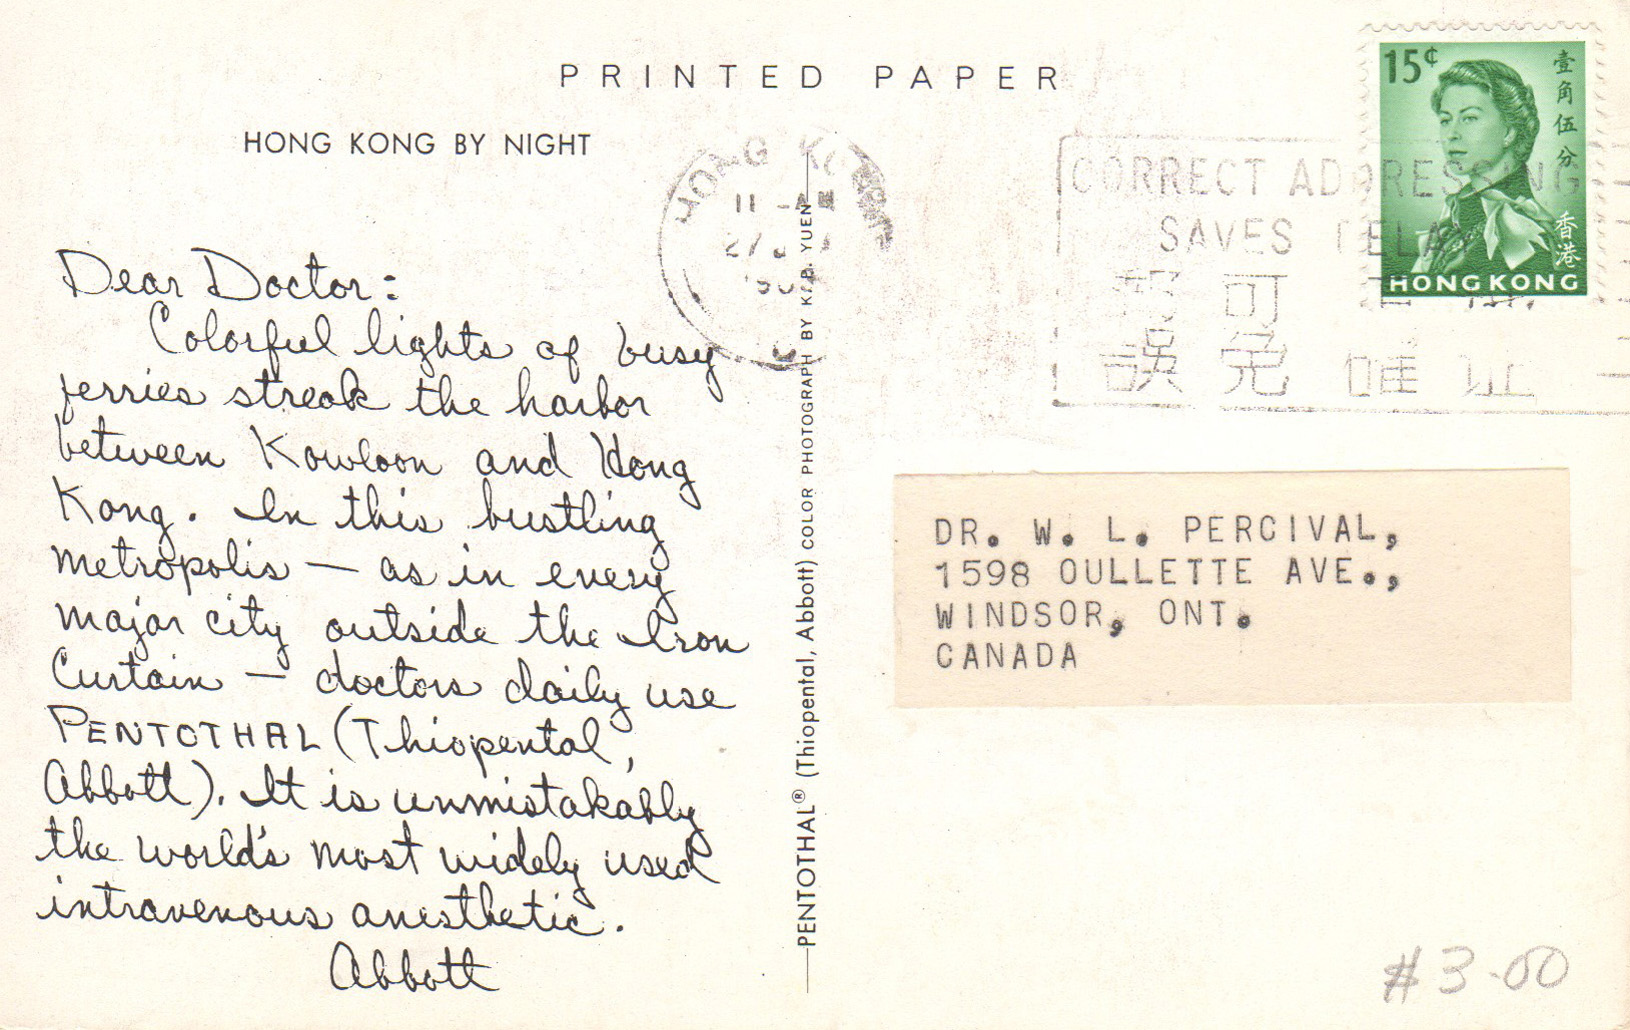 PRINTED PAPER
HONG KONG BY NIGHT
Dear Doctor:
Colorful lights of busy
ferries streak the harbor
between Kowloon and Hong
Kong. In this bustling
metropolis — as in every
major city outside the Iron
Curtain — doctors daily use
PENTOTHAL (Thiopental,
Abbott). It is unmistakably
the world's most widely used
intravenous anesthetic.
Abbott
PENTOTHAL® (Thiopental, Abbott) COLOR PHOTOGRAPH BY YUEN
HONG KONG
11 - AM
27
CORRECT ADDRESSING
SAVES DELAY
可
誤 免
15¢
壹角伍分
香港
HONG KONG
DR. W. L. PERCIVAL,
1598 OULLETTE AVE.,
WINDSOR, ONT.
CANADA
#3.00